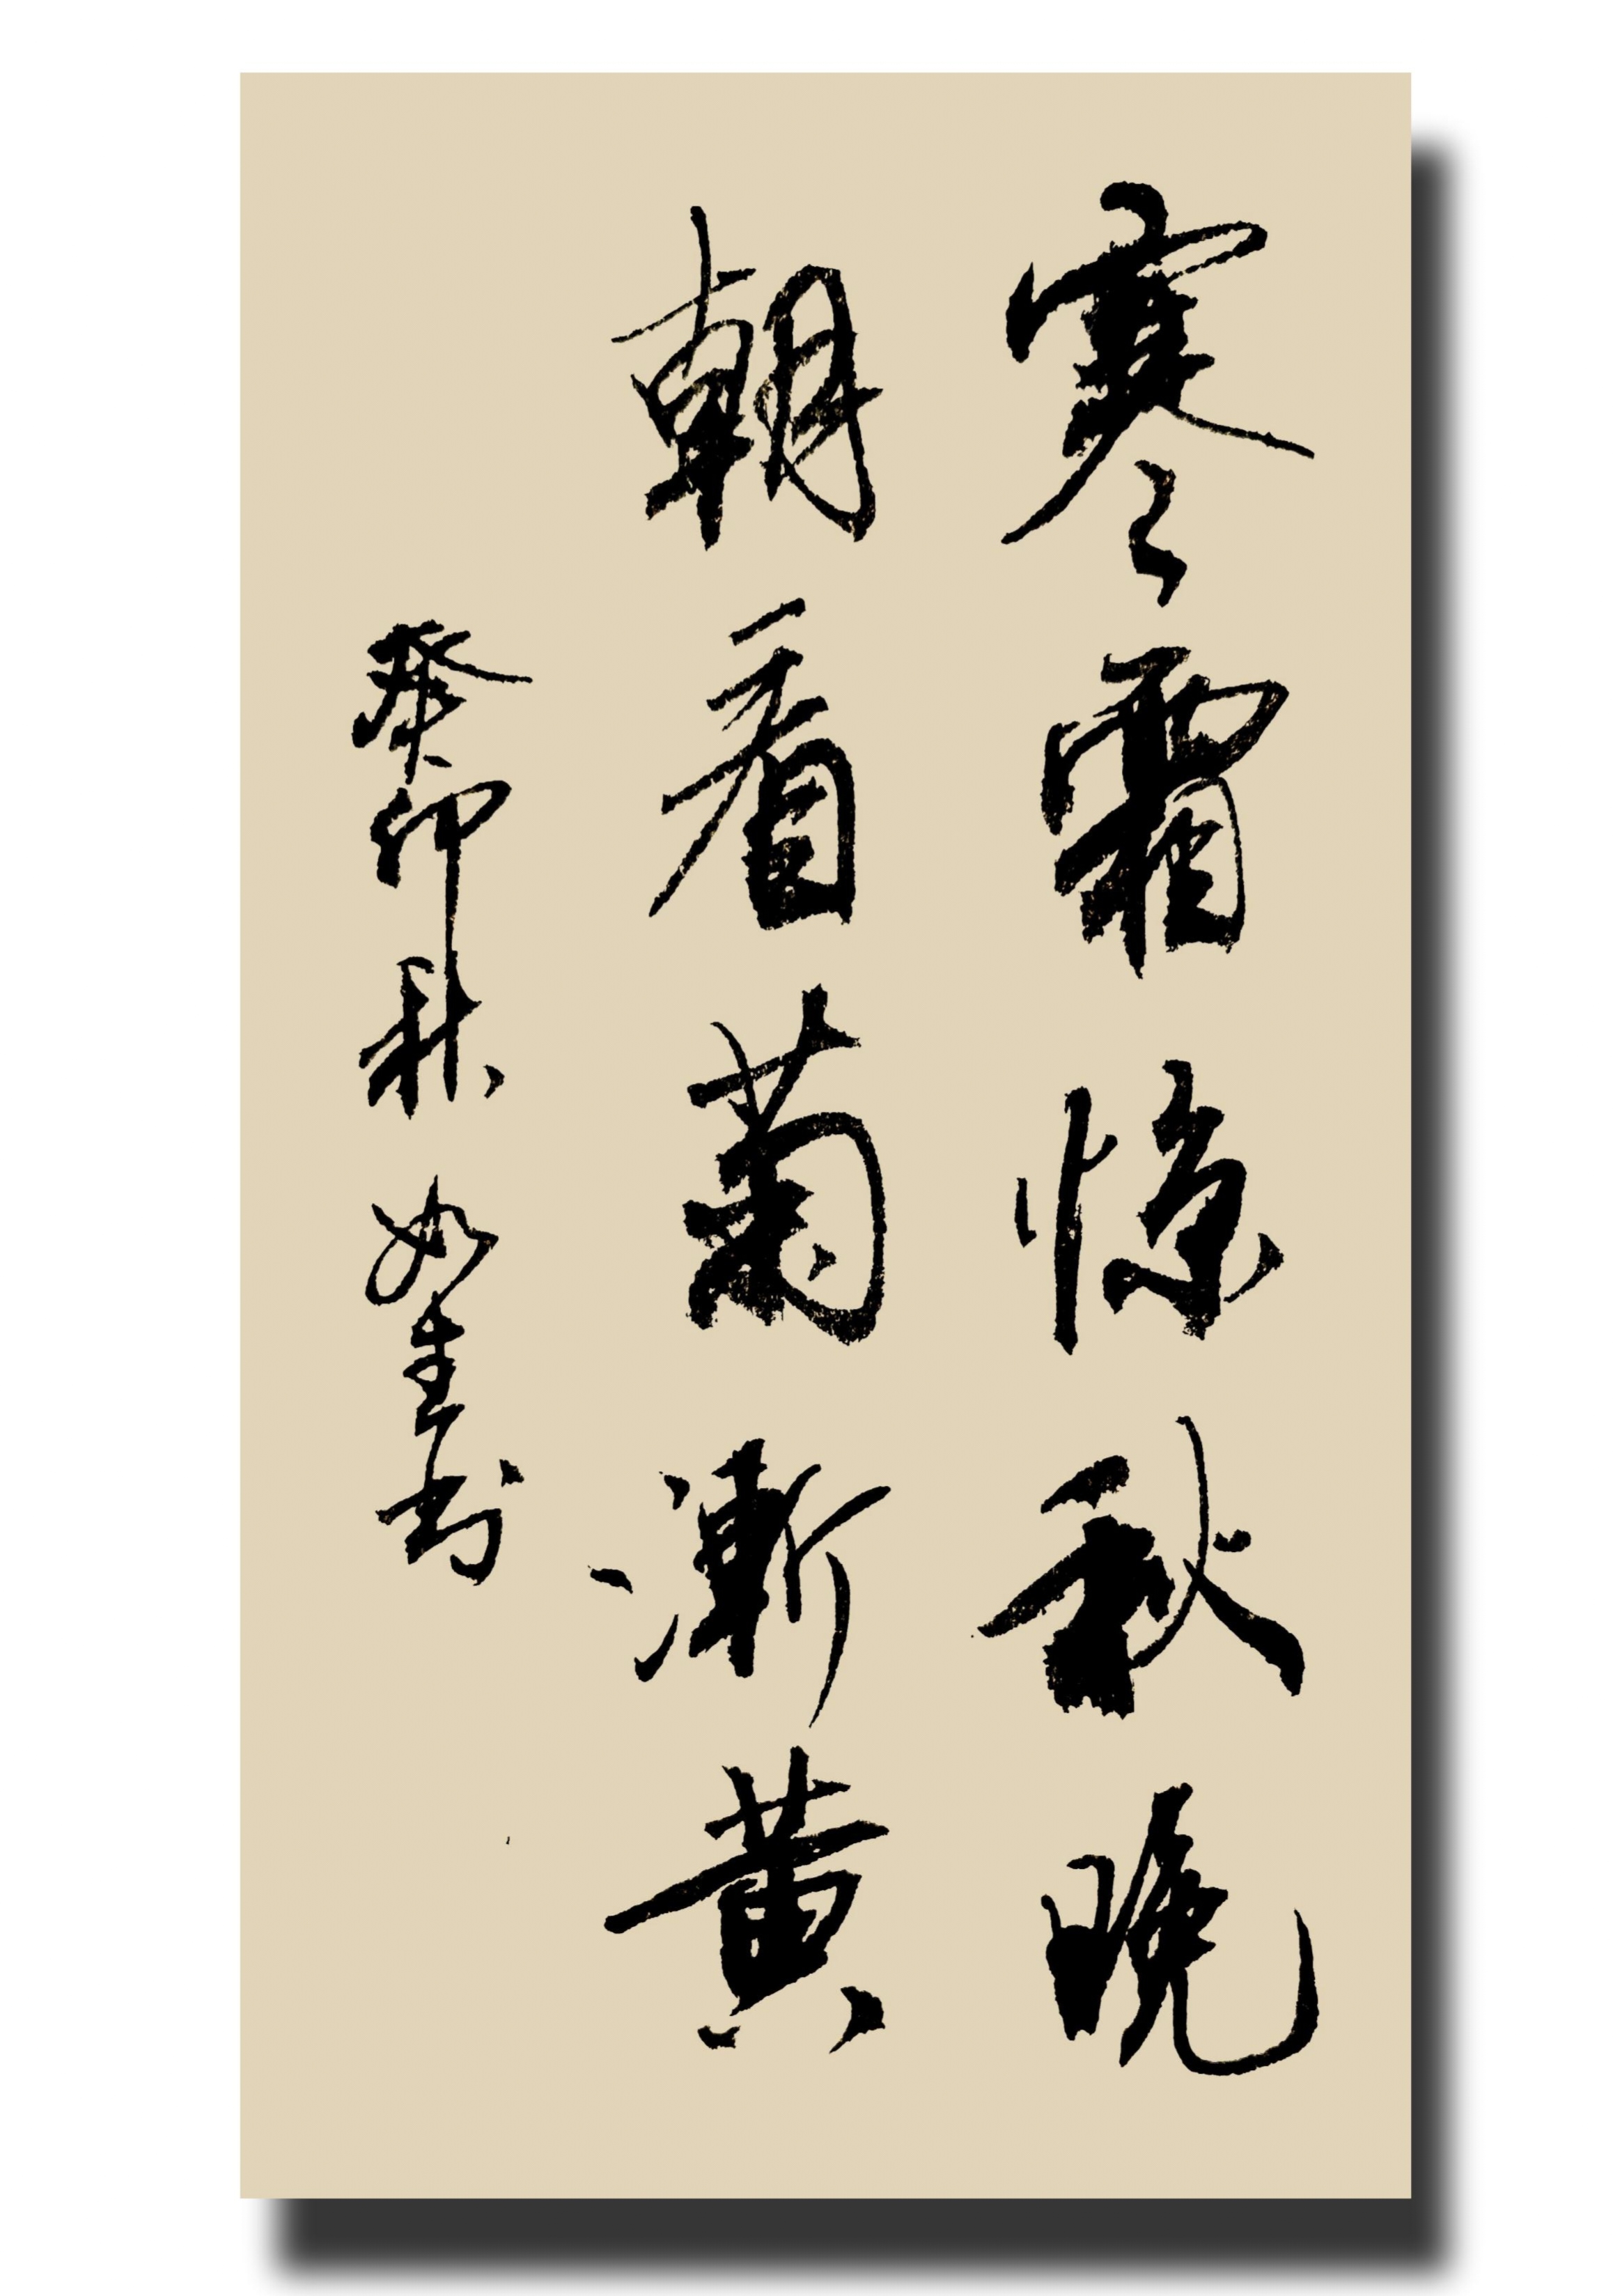 寒霜惊秋晚
朝看菊渐黄
癸卯秋 如生书